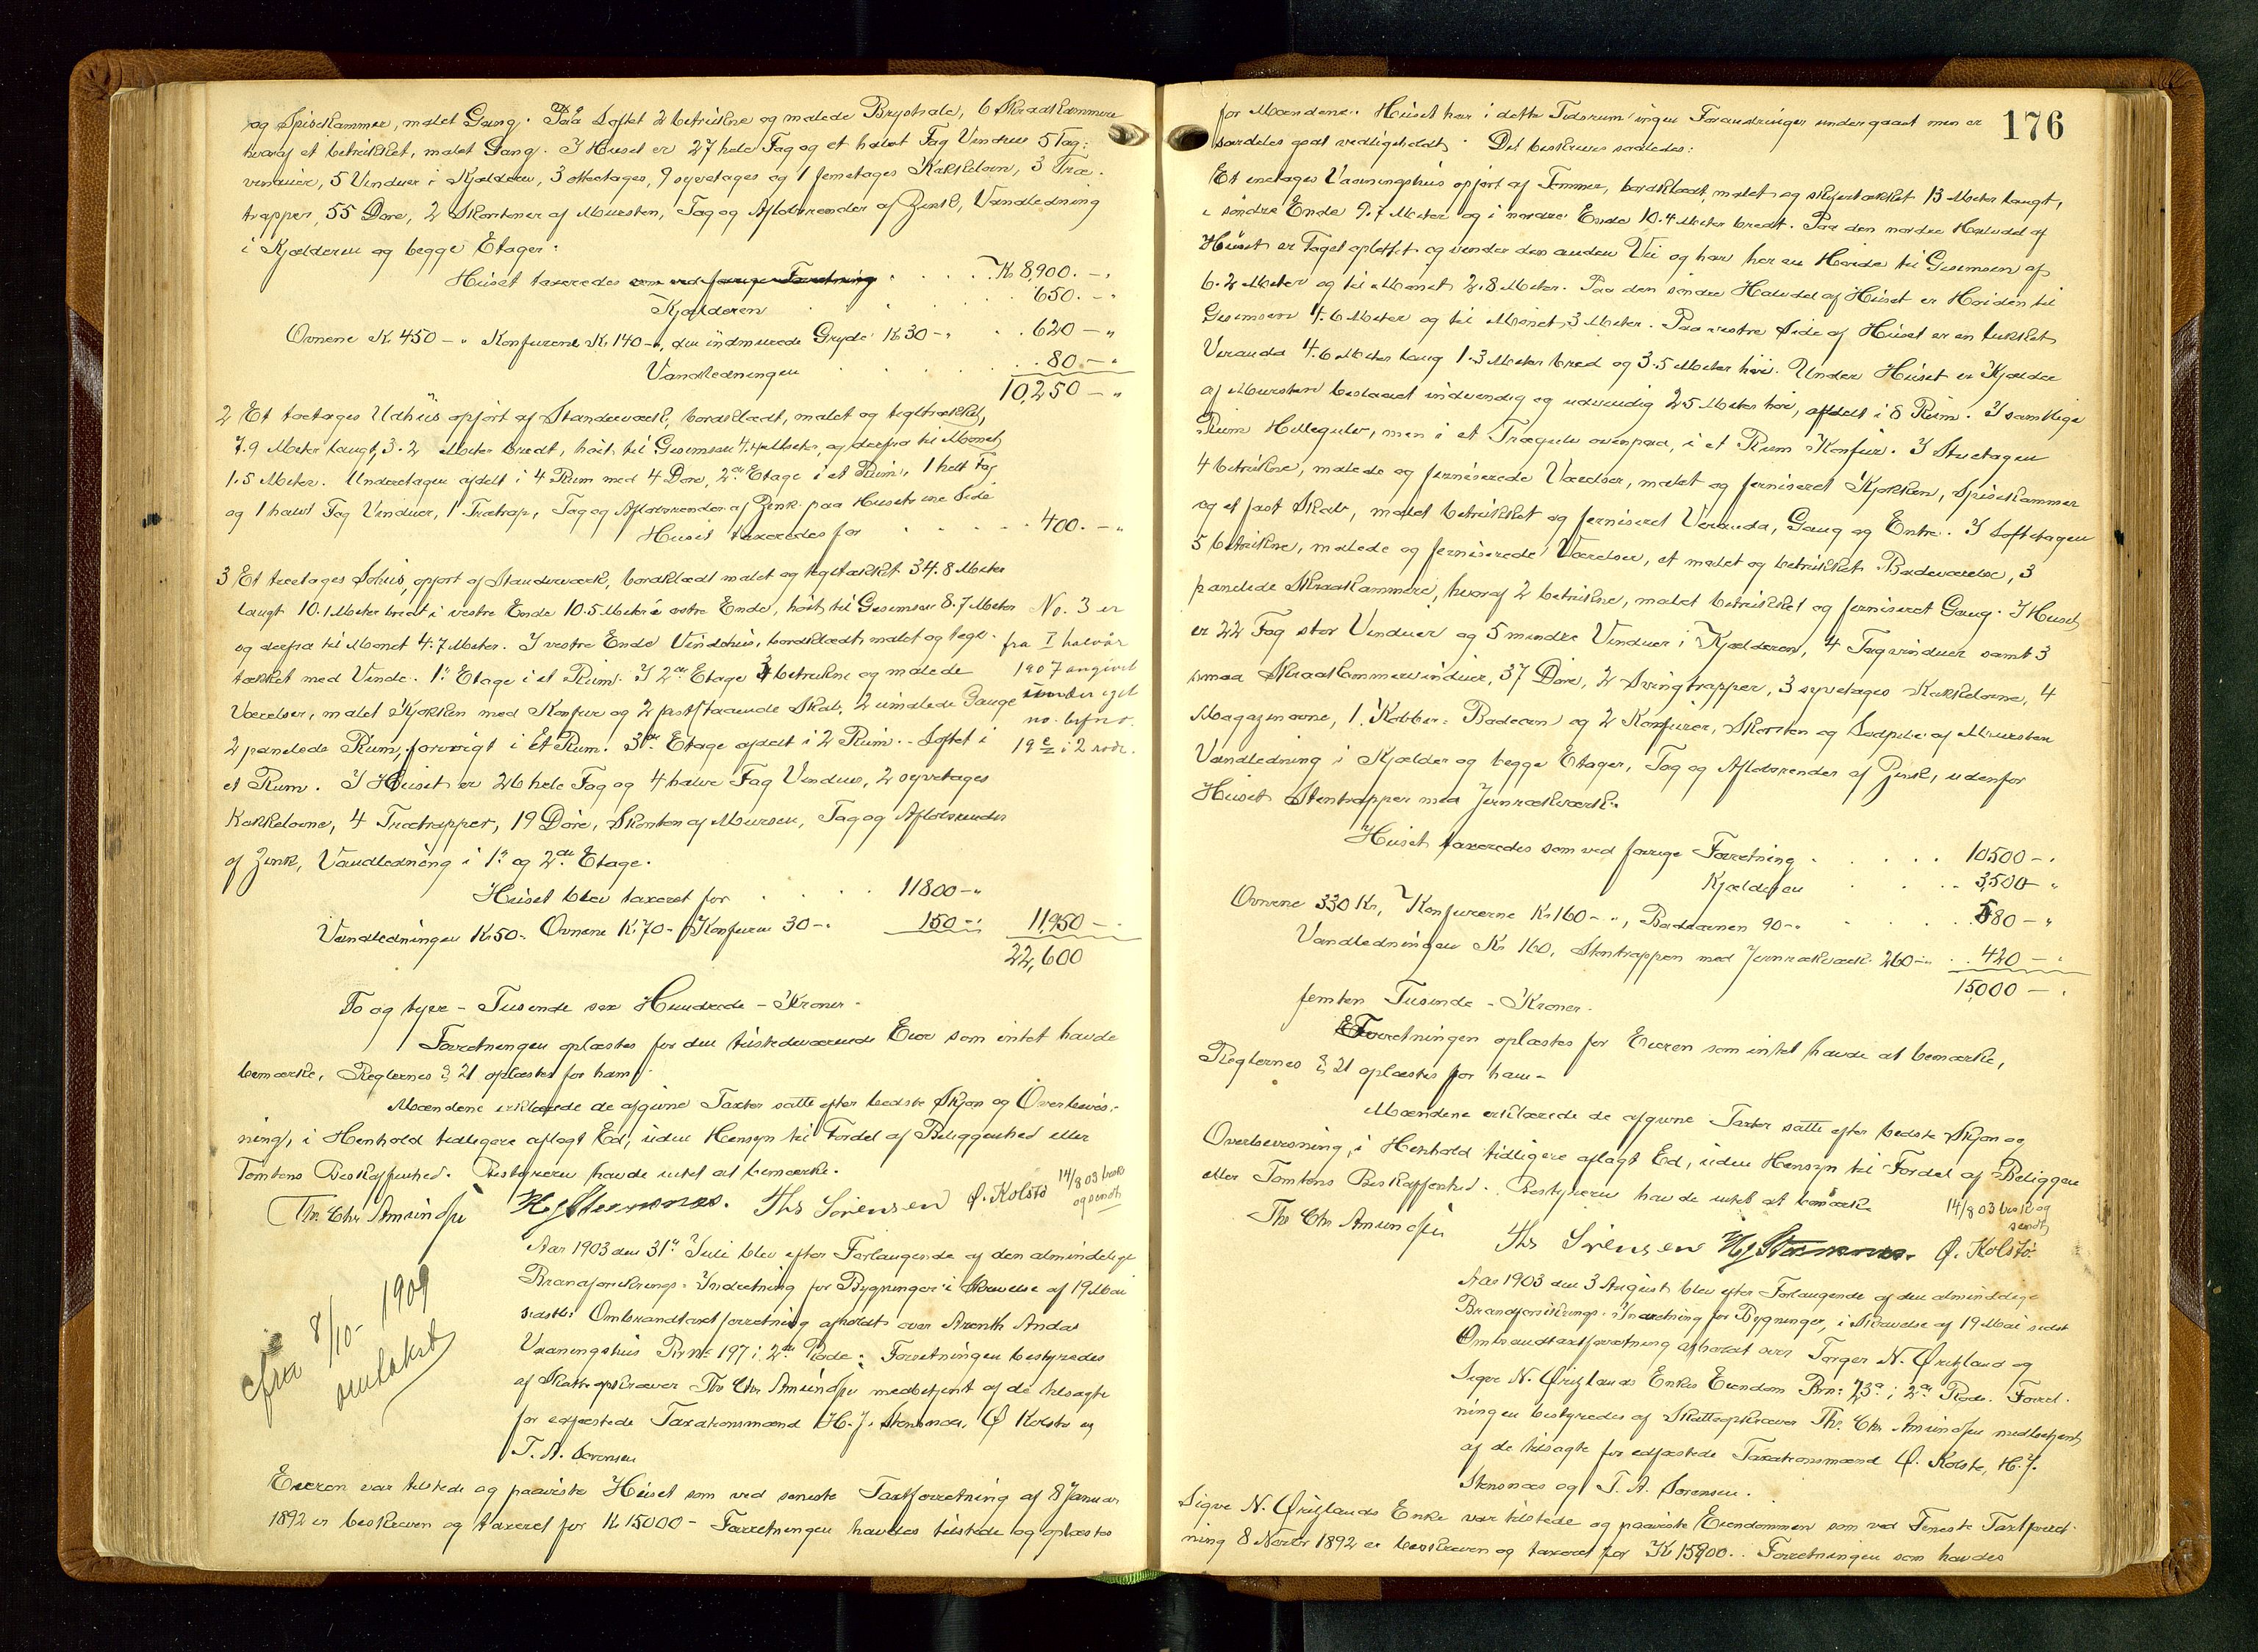 og Spisekammer, malet Gang. Paa Loftet 2 betrukne og malede Brystsale, 6 Skraakammere
hvoraf et betrukket, malet Gang. I Huset er 27 hele Fag og et halvt Fag Vinduer 5 Tag-
vinduer, 5 Vinduer i Kjælderen, 3 otteetages, 9 syvetages og 1 femetages Kakkelovn, 3 Træ-
trapper, 55 Døre, 2 Skorstener af Mursten, Tag og Afløbsrender af Zink, Vandledning
i Kjælderen og begge Etager.
Huset taxeredes som ved forrige Forretning . . . . . Kr. 8,900. – "
Kjælderen . . . 650. – "
Ovnene Kr. 450 – " Konfurene Kr. 140 – ", den indmurede Gryde Kr 30 – " . . 620 – "
Vandledningen . . . . 80. – "
10,250 – "
2 Et toetages Udhus opført af Stenderværk, bordklædt, malet og tegltækket,
7.9 Meter langt, 3.2 Meter bredt, høit til Gesimsen 4.4 Meter, og derfra til Mønet
1.5 Meter. Underetagen afdelt i 4 Rum med 4 Døre, 2den Etage i et Rum, 1 helt Fag
og 1 halvt Fag Vinduer, 1 Trætrap, Tag og Afløbsrender af Zink paa Husets ene Side
Huset taxeredes for . . . . . 400. – "
3 Et treetages Søhus, opført af Stenderværk, bordklædt malet og tegltækket 34.8 Meter
langt 10.1 Meter bredt i vestre Ende 10.5 Meter i østre Ende, høit til Gesimsen 8.7 Meter
og derfra til Mønet 4.7 Meter. I vestre Ende Vindehus, bordklædt, malet og tegl-
tækket med Vinde. 1ste Etage i et Rum. I 2den Etage 3 betrukne og malede
Værelser, malet Kjøkken med Konfur og 2 fastst​aaende Skab, 2 umalede Gange
2 panelede Rum, forøvrigt i Et Rum. 3die Etage afdelt i 2 Rum. Loftet i
et Rum. I Huset er 26 hele Fag og 4 halve Fag Vinduer, 2 syvetages
Kakkelovne, 4 Trætrapper, 19 Døre, Skorsten af Mursten, Tag og Afløbsrender
af Zink, Vandledning i 1ste og 2den Etage.
No. 3 er
fra I halvår
1907 angivet
under eget
no. 
19 c i 2 rode.
Huset blev taxeret for . . . 11800 – "
Vandledningen Kr 50 – Ovnene Kr. 70 – Konfuren 30 – " 150 – " 11,950 – "
22,600
To og tyve – Tusende sex Hundrede – Kroner –
Forretningen oplæstes for den tilstedeværende Eier som intet havde
bemærke, Reglernes § 21 oplæstes for ham.
Mændene erklærede de afgivne Taxter satte efter bedste Skjøn og Overbevis-
ning, i Henhold tidligere aflagt Ed, uden Hensyn til Fordel af Beliggenhed eller
Tomtens Beskaffenhed. Bestyreren havde intet at bemærke.
Ths. Chr. Amundsen H. J. Stensnæs. Ths Sørensen Ø. Kolstø
14/8 03 besk
og sendt
Aar 1903 den 31te Juli blev efter Forlangende af den almindelige
Brandforsikrings-Indretning for Bygninger i Skrivelse af 19 Mai
sidstl. Ombrandtaxtforretning afholdt over Arenth Andas
Vaaningshus Br.No 197 i 2den Rode. Forretningen bestyredes
af Skatteopkræver Ths Chr. Amundsen medbetjent af de tilsagte
før edfæstede Taxationsmænd H. J. Stensnæs, Ø Kolstø og
T. A. Sørensen
8/10 – 1909
omtakst
Eieren var tilstede og paaviste Huset som ved seneste Taxtforretning af 8 Januar
1892 er beskreven og taxeret for Kr 15000 – Forretningen havdes tilstede og oplæstes
176
for Mændene. Huset har i dette Tidsrum ingen Forandringer undergaaet men er
særdeles godt vedligeholdt. Det beskrives saaledes:
Et enetages Vaaningshus opført af Tømmer, bordklædt, malet og skifertækket 13 Meter langt,
i søndre Ende 9.7 Meter og i nordre Ende 10.4 Meter bredt. Paa den nordre Halvdel af
Huset er Taget opløftet og vender den anden Vei og har her en Høide til Gesimsen af
6.2 Meter og til Mønet 2.8 Meter. Paa den søndre Halvdel af Huset er Høiden til
Gesimsen 4.6 Meter og til Mønet 3 Meter. Paa vestre Side af Huset er en lukket
Veranda 4.6 Meter lang 1.3 Meter bred og 3.5 Meter høi. Under Huset er Kjælder
af Mursten beslaaet indvendig og udvendig 2.5 Meter høi, afdelt i 8 Rum. I samtlige
Rum Hellegulv, men i et Trægulv ovenpaa, i et Rum Konfur. I Stuetagen
4 betrukne, malede og ferniserede Værelser, malet og ferniseret Kjøkken, Spisekammer
og et fast Skab, malet betrukket og ferniseret Veranda, Gang og Entre. I Loftetagen
5 betrukne, malede og ferniserede Værelser, et malet og betrukket Badeværelse, 3
panelede Skraakammere, hvoraf 2 betrukne, malet betrukket og ferniseret Gang. I Huset
er 22 Fag store Vinduer og 5 mindre Vinduer i Kjælderen, 4 Tagvinduer samt 3
smaa Skraakammervinduer, 37 Døre, 2 Svingtrapper, 3 syvetages Kakkelovne, 4
Magazinovne, 1 Kobber-Badeovn og 2 Konfurer, Skorsten og Ludpibe af Mursten
Vandledning i Kjælder og begge Etager, Tag og Afløbsrender af Zink, udenfor
Huset Stentrapper med Jernrækværk.
Huset taxeredes som ved forrige Forretning . . . . . 10500 – "
Kjælderen . . . . 3,500 – "
Ovnene 330 Kr, Konfurerne Kr 160 – ", Badeovnen 90 – " . . . 580 – "
Vandledningen Kr 160, Stentrappen med Jernrækværk 260 – " . . 420 – "
15,000 – "
femten Tusinde – Kroner –
Forretningen oplæstes for Eieren som intet havde at bemærke,
Reglernes § 21 oplæstes for ham –
Mændene erklærede de afgivne Taxter satte efter bedste Skjøn og
Overbevisning, i Henhold tidligere aflagt Ed, uden Hensyn til Fordel af Beliggen
eller Tomtens Beskaffenhed. Bestyreren havde intet at bemærke
Ths Chr Amundsen Ths Sørensen H J Stensnæs. Ø. Kolstø
14/8 03 besk og
sendt
Aar 1903 den 3 August blev efter Forlangende af den almindelige
Brandforsikrings-Indretning for Bygninger, i Skrivelse af 19 Mai sidst
Ombrandtaxtforretning afholdt over Torger N. Qvitland og
Sigve N. Qvitlands Enkes Eiendom Brn: 73a i 2den Rode. Forret-
ningen bestyredes af Skatteopkræver Ths. Chr Amundsen medbetjent
af de tilsagte før edfæstede Taxationsmænd Ø. Kolstø, H. J.
Stensnæs og T. A. Sørensen.
Sigve N. Qvitlands Enke var tilstede og paaviste Eiendommen som ved seneste Taxtforret-
ning 8 Novbr 1892 er beskreven og taxeret for Kr 15900. Forretningen som havdes